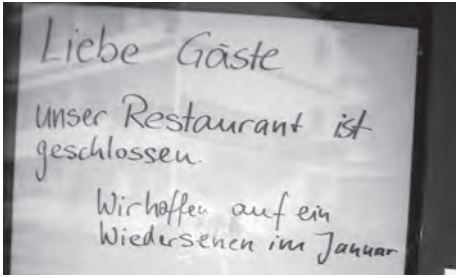 Liebe Gäste
unser Restaurant ist
geschlossen.
Wir hoffen auf ein
Wiedersehen im Januar